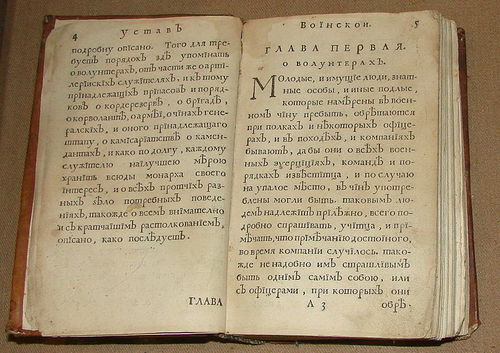 4
Уставъ
подробну опісано. Того для тре-
буетъ порядокъ здѣ упомінать
о волунтерахъ, отъ части же о арті-
лерїискіхъ служітеляхъ, и къ тому
прінадлежащіхъ пріпасовъ и поряд-
ковъ о кордерезервъ, о брігадъ,
о корволантъ, о армїи, о чінахъ гене-
ралскіхъ, и оного прінадлежащаго
штапу, о камісаріатствъ о камен-
дантахъ, и како по долгу, каждому
служітелю наілучшею мѣрою
храніть всюды монарха своего
інтересъ, и о всѣхъ протчіхъ раз-
ныхъ зѣло потребныхъ поведе-
нїяхъ, такожде о всемъ внімателно
и съ кратчаішімъ растолкованіемъ,
опісано, како послѣдуетъ.
ГЛАВА
Воінскои.
5
ГЛАВА ПЕРВАЯ.
О ВОЛУНТЕРАХЪ.
Молодые, и имущіе люди, знат-
ные особы, и иные подлые,
которые намѣрены въ воен-
номъ чіну пребыть, обрѣтаются
при полкахъ и нѣкоторыхъ офіце-
рахъ, и въ походѣхъ, и компаніяхъ
бываютъ, да бы они о всѣхъ воен-
ныхъ эѯерціціяхъ, командѣ и по-
рядкахъ извѣстітца, и по случаю
на упалое мѣсто, въ чінъ употреб-
лены могли быть. таковымъ лю-
демъ надлежітъ прілѣжно, всего по-
дробно спрашівать, учітца, и прі-
мѣчать, что прімѣчанїю достоіного,
во время компаніи случілось. тако-
жде не надобно имъ страшлівымъ
быть однімъ самімъ собою, или
съ офіцерами, при которыхъ они
А 3
обрѣ-